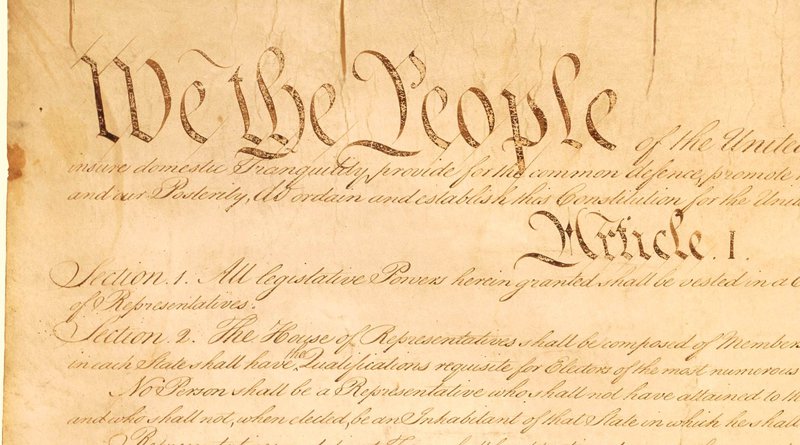 We the People of the United
insure domestic Tranquility, provide for the common defence, promote
and our Posterity, do ordain and establish this Constitution for the Unit
Article. I.
Section. 1. All legislative Powers herein granted shall be vested in a
of Representatives.
Section. 2. The House of Representatives shall be composed of Members
in each State shall have the Qualifications requisite for Electors of the most numerous
No Person shall be a Representative who shall not have attained to
and who shall not, when elected, be an Inhabitant of that State in which he shall